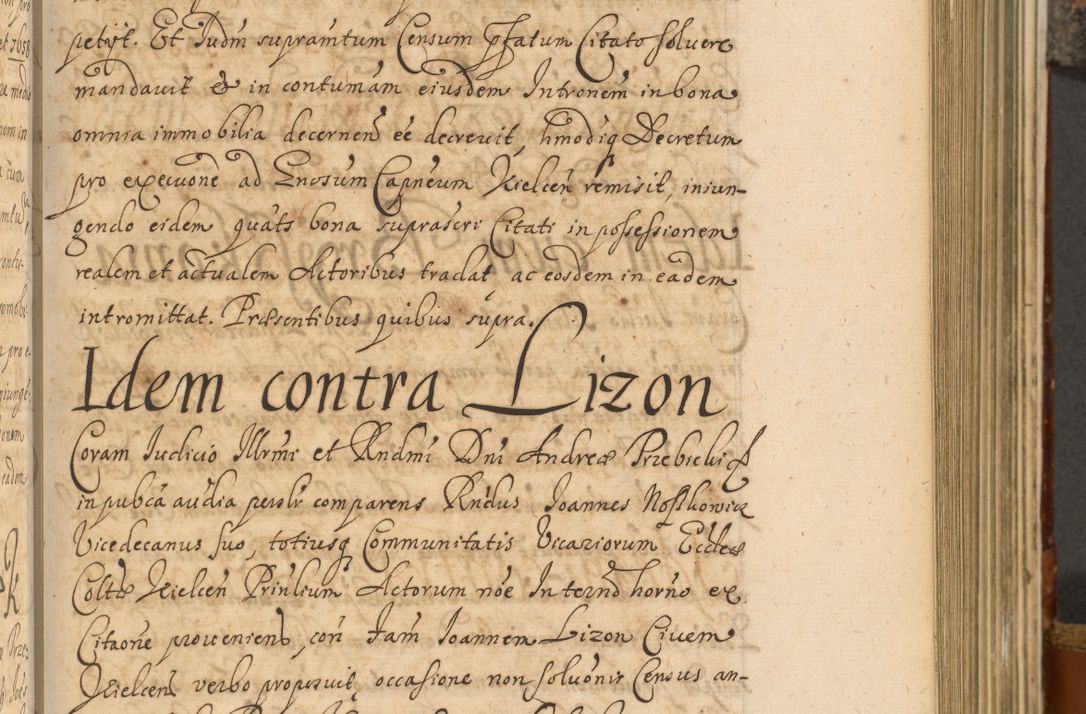 petijt. Et Iudm̃ supramtum Censum pfatum Citato solvere
mandavit & in contumam eiusdem Intronem̃ in bona
omnia immobilia decernen̄ eē decrevit, hmodiq Decretum
pro execuone ad Enosum Capneum Kielcen̄ remisit, iniun-
gendo eidem quats bona suprascri Citati in possessionem
realem et actualem Actoribus tradat ac eosdem in eadem
intromittat. Præsentibus quibus supra.
Idem contra Lizon
Coram Iudicio Illrmi et Rndmi Dni Andreæ Przebicki
in pubca audia persolr comparens Rndus Ioannes Noskowicz
Vicedecanus suo, totiusq Communitatis Vicariorum Eccleæ
Coltæ Kielcen̄ Prinlium Actorum nōe In termō horno ex
Citaone proveniens, con Fam Ioannem Lizon Civem
Kielcens verbo proposuit, occasione non solvonis Census an-